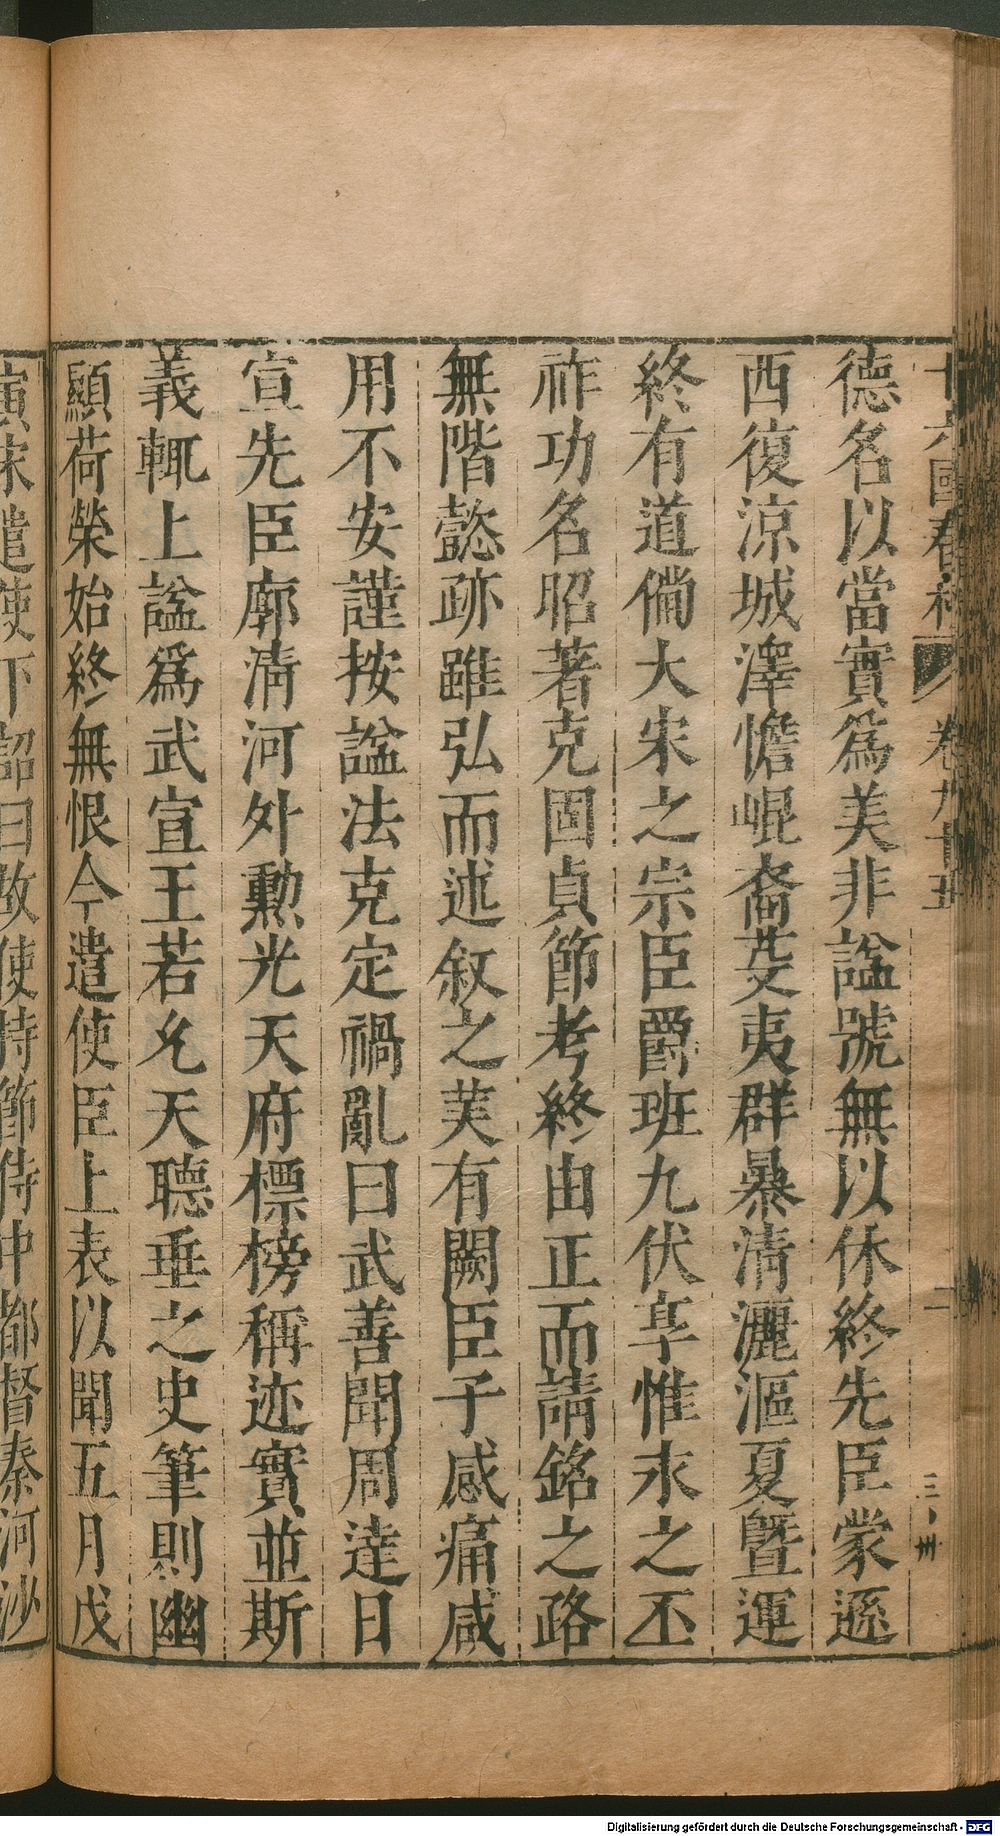 十六國春秋 卷九十五 二
德名以當實爲美非諡號無以休終先臣蒙遜
西復涼城澤憺崐裔芟夷群暴清灑漚夏曁運
終有道偹大宋之宗臣爵班九伏享惟永之丕
祚功名昭著克固貞節考終由正而請銘之路
無階懿跡雖弘而述叙之美有闕臣子感痛咸
用不安謹按諡法克定禍亂曰武善聞周達曰
宣先臣廓清河外勲光天府標榜稱迹實並斯
義輒上諡爲武宣王若允天聽垂之史筆則幽
顯荷榮始終無恨今遣使臣上表以聞五月戊
寅宋遣使下詔曰故使持節侍中都督秦河沙
Digitalisierung gefördert durch die Deutsche Forschungsgemeinschaft - DFG